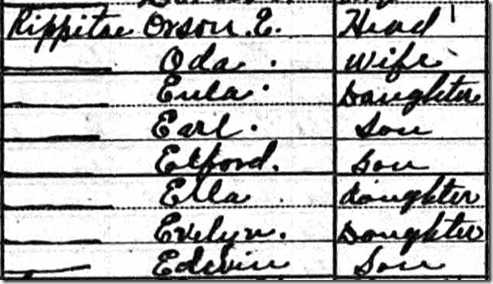 Rippitae Orson. E. Head
Oda. Wife
Eula. Daughter
Earl. Son
Elford. Son
Ella Daughter
Evelyn. Daughter
Edwin Son